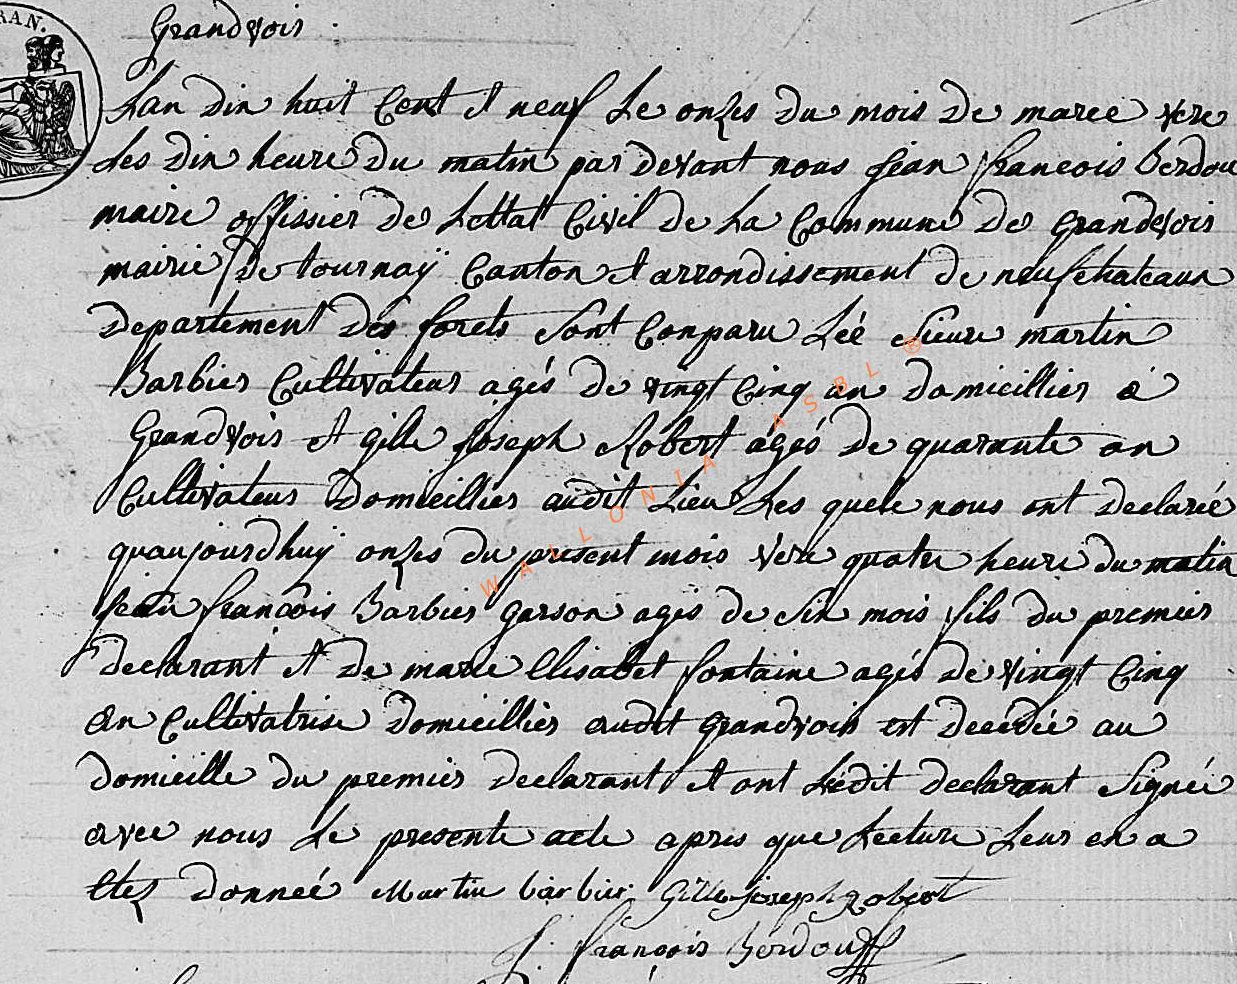 RAN.
Grandvoir
Lan dix huit Cent et neuf Le onzes du mois de marce vere
Les dix heure du matin par devant nous jean francois Berdou
maire offissier de Lettat Civil de La Commune de Grandvoir
mairie de tournay Canton et arrondissement de neufchateaux
departement des forets Sont Conparu Léé Sieure martin
Barbier Cultivateur agés de vingt Cinq an domicillier a
Grandvoir et gille joseph Robert agés de quarante an
Cultivateur Domicillier audit Lieu Les quele nous ont declareé
quaujourdhuy onzes du present mois vere quatre heure du matin
jean francois Barbier garson agés de Six mois fils du premier
declarant et de marie Elisabet fontaine agés de vingt Cinq
an Cultivatrise Domicilliér audit grandvoir est decedée au
domicille du premier declarant et ont Lédit declarant Signée
avec nous Le presente acte apres que Lecture Leur en a
etez donneé Martin barbier Gille joseph robert
J. françois Berdou
WALLONIA ASBL ®